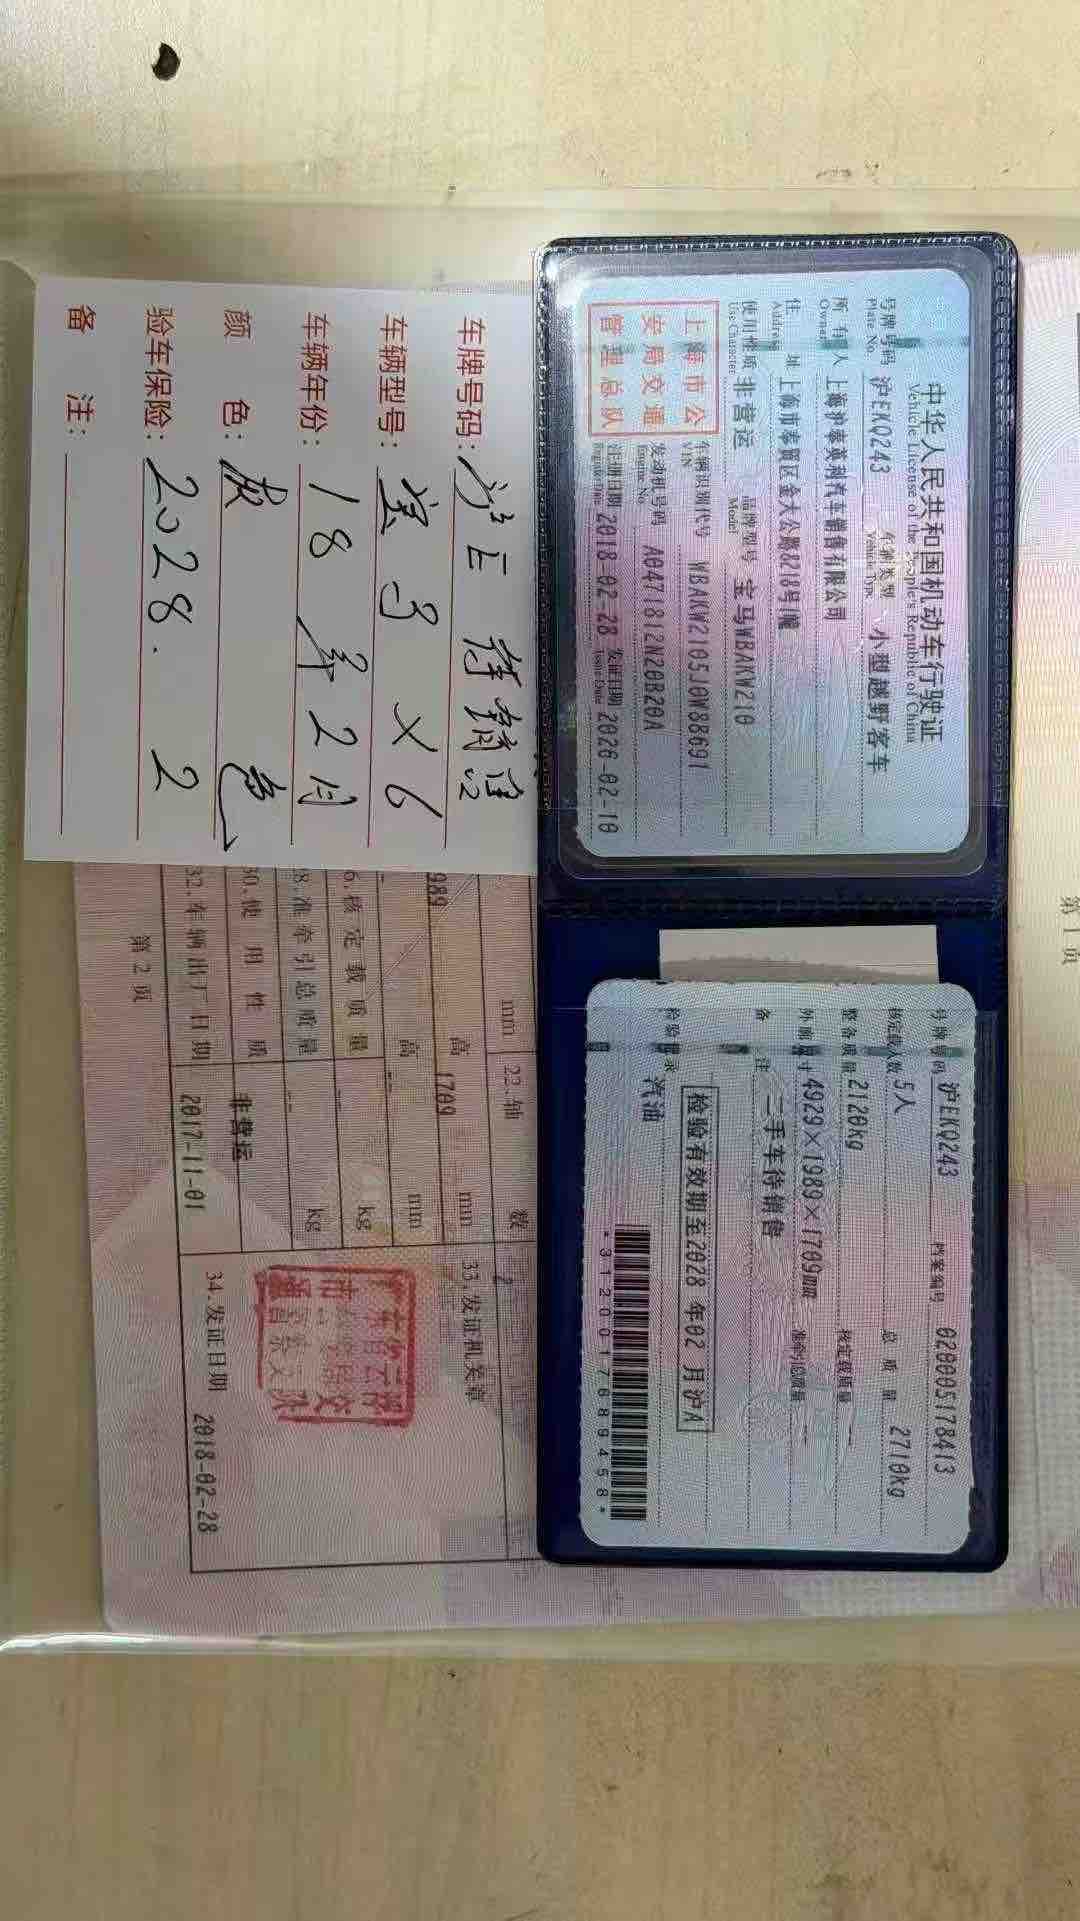 中华人民共和国机动车行驶证
Vehicle License of the People's Republic of China
号牌号码 沪EKQ243 车辆类型 小型越野客车
Plate No. Vehicle Type
所有人 上海沪泰英利汽车销售有限公司
Owner
住址 上海市奉贤区金大公路8218号1幢
Address
使用性质 非营运 品牌型号 宝马WBAKW210
Use Character Model
上海市公
安局交通
管理总队
车辆识别代号 WBAKW2105J0W88691
VIN
发动机号码 A047812N20B20A
Engine No.
注册日期 2018-02-28 发证日期 2026-02-10
Register Date Issue Date
号牌号码 沪EKQ243 档案编号 020005178413
核定载人数 5人 总质量 2710kg
整备质量 2120kg 核定载质量 --
外廓尺寸 4929×1989×1709mm 准牵引总质量 --
备注 二手车待销售
检验有效期至2028年02月沪A
检验记录 汽油
*3120017689458*
车牌号码: 沪E 待销售
车辆型号: 宝马X6
车辆年份: 18年2月
颜色: 灰色
验车保险: 2028.2
备注:
mm 22.轴 数 2
989 高 1709 mm
高 -- mm
6.核定载质量 -- kg
8.准牵引总质量 -- kg
30.使用性质 非营运
32.车辆出厂日期 2017-11-01
33.发证机关章
34.发证日期 2018-02-28
第2页
第1页